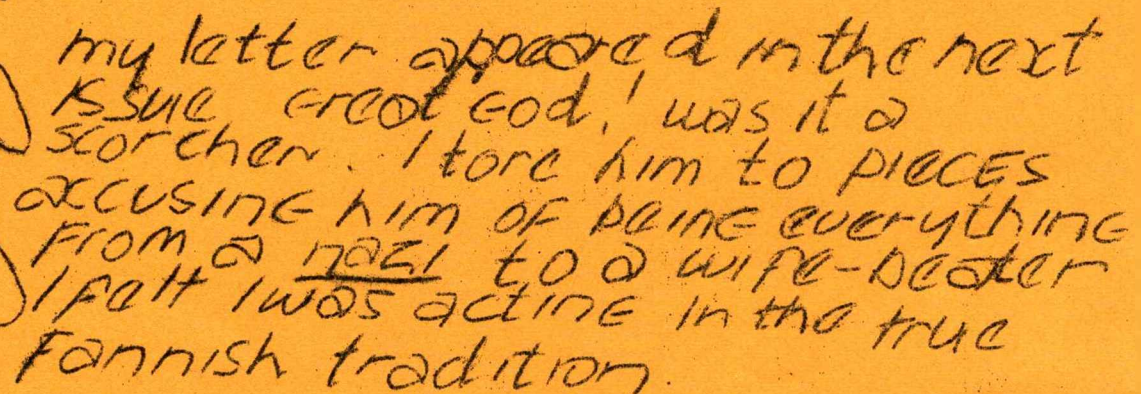 my letter appeared in the next
issue Great God! was it a
scorcher. I tore him to pieces
accusing him of being everything
from a nazi to a wife-beater
I felt I was acting in the true
Fannish tradition.